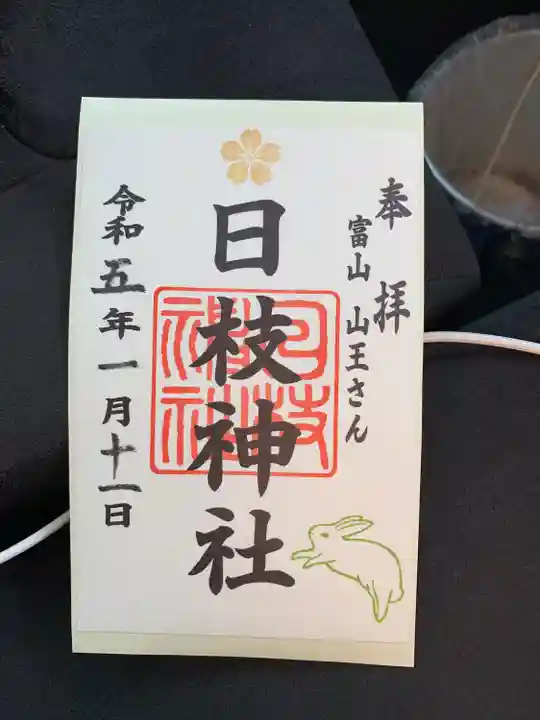 奉拝
富山 山王さん
日枝神社
日枝神社
令和五年一月十一日